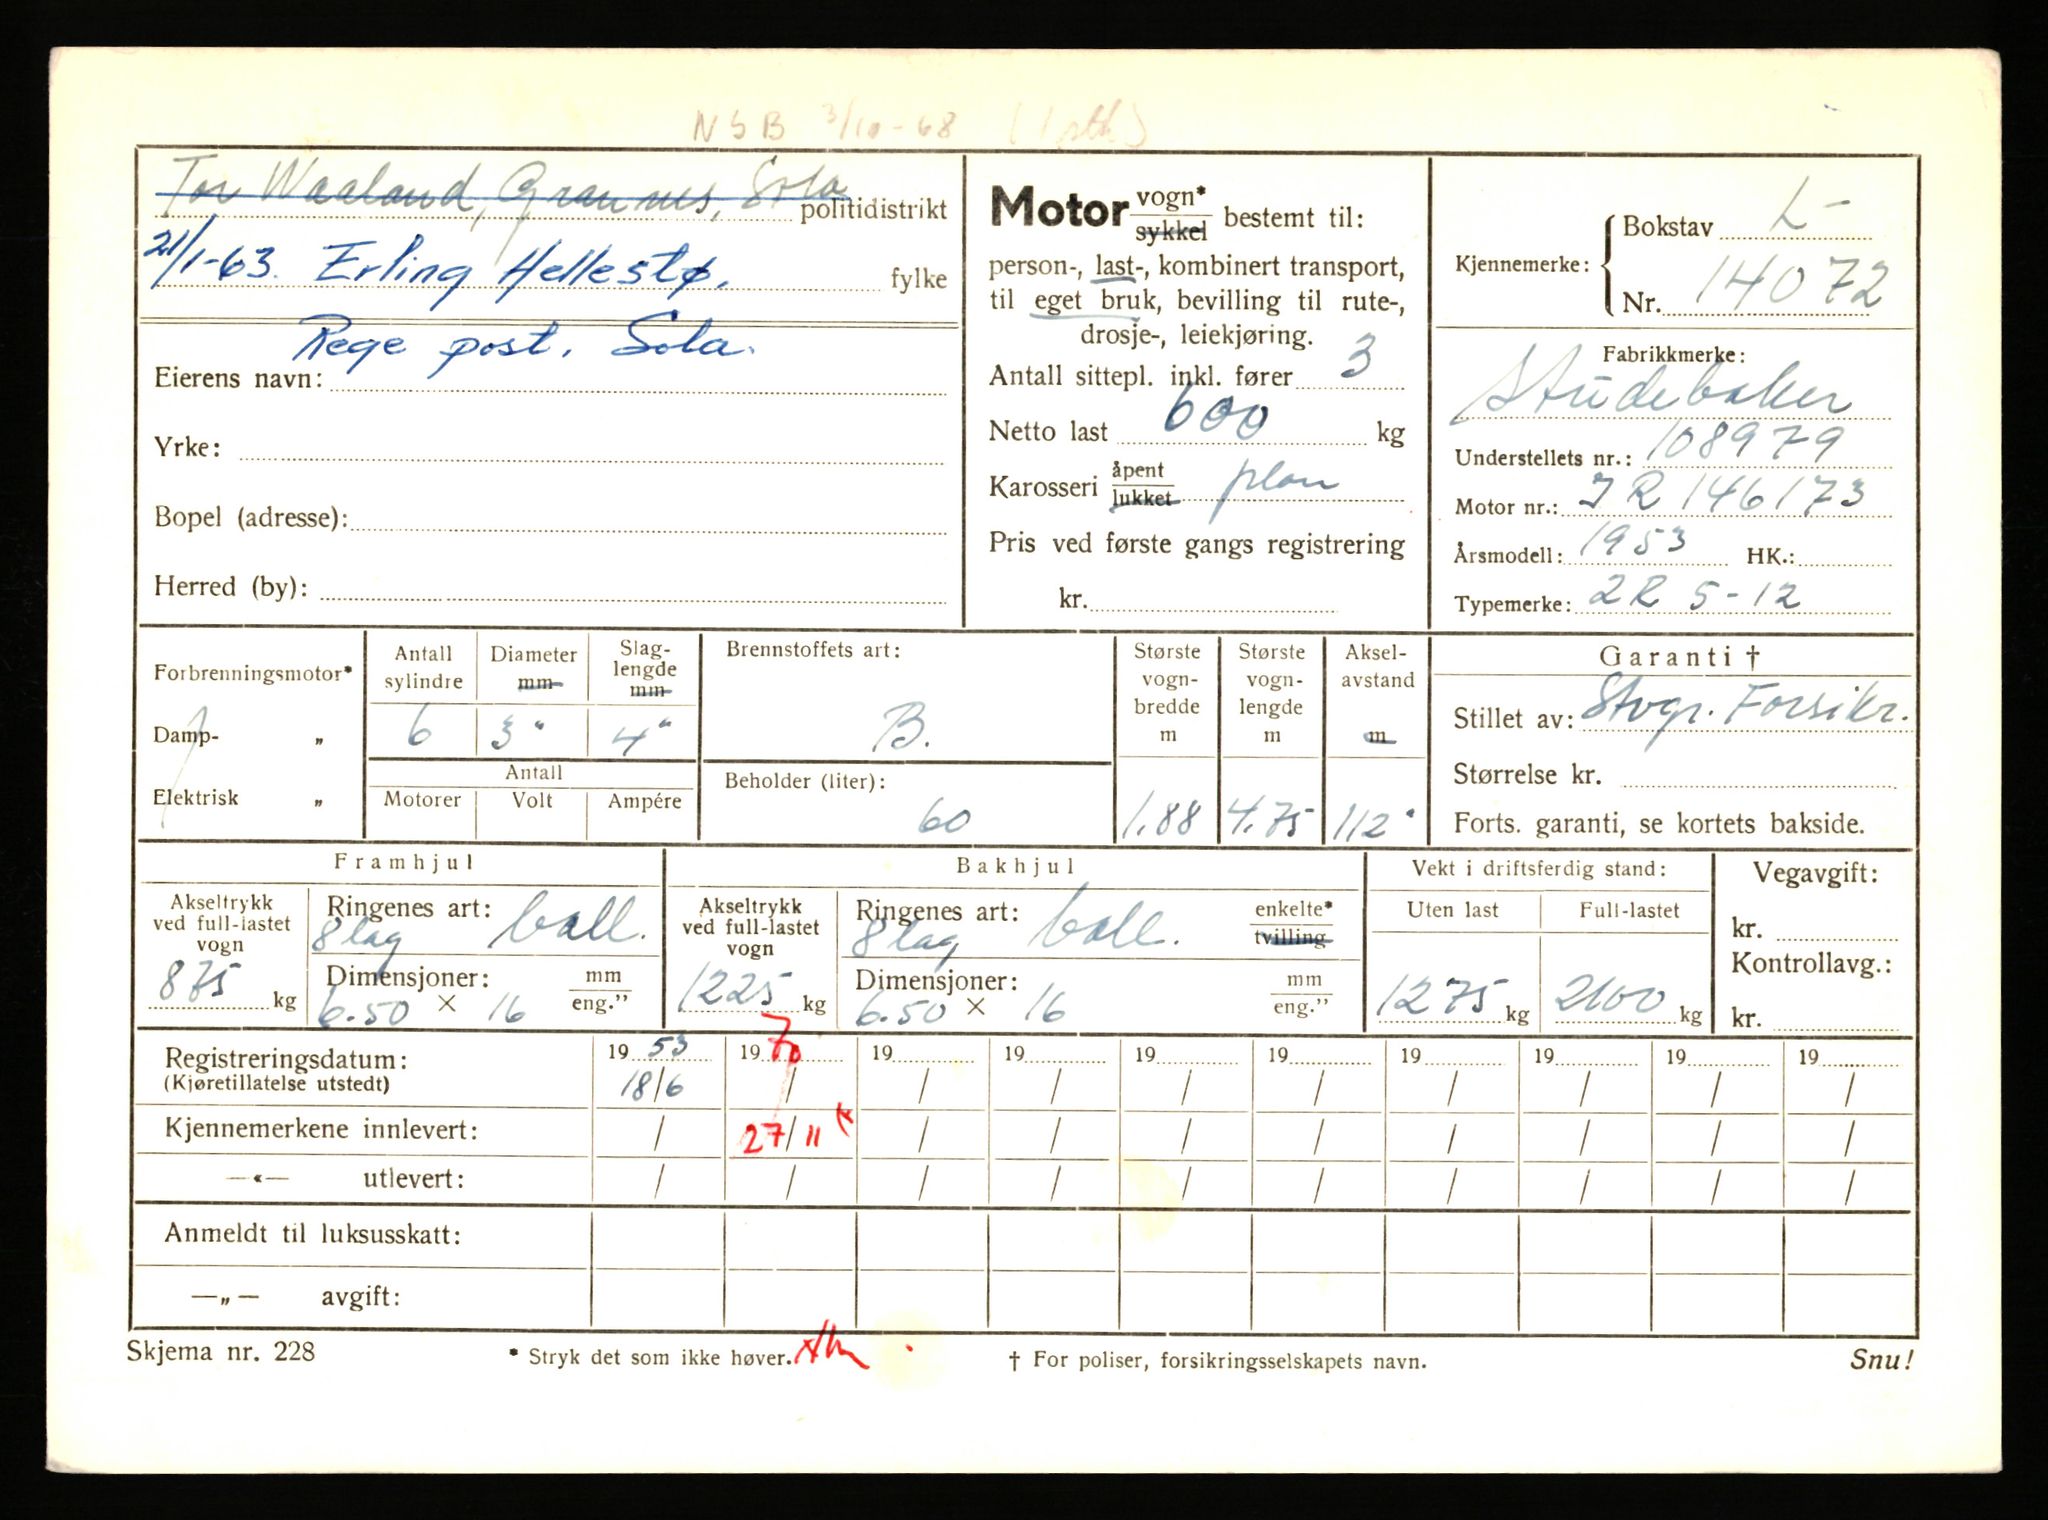 NSB 3/10-68 (1 stk)
Tor Waaland, Grannes, Sola
politidistrikt
21/1-63. Erling Hellestø.
fylke
Rege post. Sola.
Eierens navn:
Yrke:
Bopel (adresse):
Herred (by):
Motor vogn* / sykkel bestemt til:
person-, last-, kombinert transport,
til eget bruk, bevilling til rute-,
drosje-, leiekjøring.
Antall sittepl. inkl. fører 3
Netto last 600 kg
Karosseri åpent / lukket plan
Pris ved første gangs registrering
kr.
Kjennemerke: Bokstav L-
Nr. 14072
Fabrikkmerke:
Studebaker
Understellets nr.: 108979
Motor nr.: JR 146173
Årsmodell: 1953 HK.:
Typemerke: 2R 5-12
Forbrenningsmotor*
Damp- „
Elektrisk „
Antall sylindre 6
Diameter mm 3"
Slaglengde mm 4"
Antall
Motorer Volt Ampére
Brennstoffets art:
B.
Beholder (liter):
60
Største vognbredde m 1.88
Største vognlengde m 4.75
Akselavstand m 112"
Garanti †
Stillet av: Stvgr. Forsikr.
Størrelse kr.
Forts. garanti, se kortets bakside.
Framhjul
Akseltrykk ved full-lastet vogn
875 kg
Ringenes art: ball.
8 lag
Dimensjoner: mm / eng."
6.50 × 16
Bakhjul
Akseltrykk ved full-lastet vogn
1225 kg
Ringenes art: ball. enkelte* / tvilling
8 lag
Dimensjoner: mm / eng."
6.50 × 16
Vekt i driftsferdig stand:
Uten last Full-lastet
1275 kg 2100 kg
Vegavgift:
kr.
Kontrollavg.:
kr.
Registreringsdatum: 1953 1970 19 19 19 19 19 19 19 19
(Kjøretillatelse utstedt) 18/6 / / / / / / / / /
Kjennemerkene innlevert: / 27/11 / / / / / / / /
—«— utlevert: / / / / / / / / / /
Anmeldt til luksusskatt:
—„— avgift:
Skjema nr. 228
* Stryk det som ikke høver.
† For poliser, forsikringsselskapets navn.
Snu!